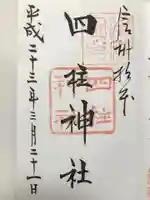 信州松本
四柱神社
平成二十三年三月二十一日